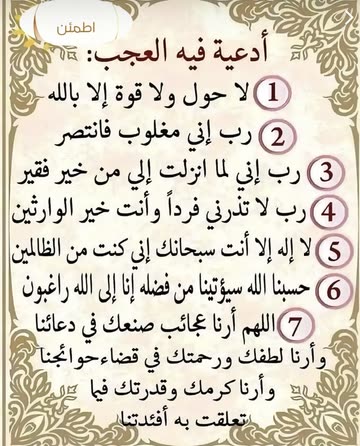 اطمئن
أدعية فيه العجب:
1 لا حول ولا قوة إلا بالله
2 رب إني مغلوب فانتصر
3 رب إني لما انزلت إلي من خير فقير
4 رب لا تذرني فرداً وأنت خير الوارثين
5 لا إله إلا أنت سبحانك إني كنت من الظالمين
6 حسبنا الله سيؤتينا من فضله إنا إلى الله راغبون
7 اللهم أرنا عجائب صنعك في دعائنا
وأرنا لطفك ورحمتك في قضاء حوائجنا
وأرنا كرمك وقدرتك فيما
تعلقت به أفئدتنا